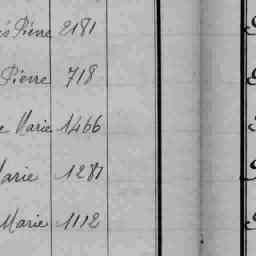 Pierre 2181
Pierre 718
Marie 1466
Marie 1287
Marie 1112